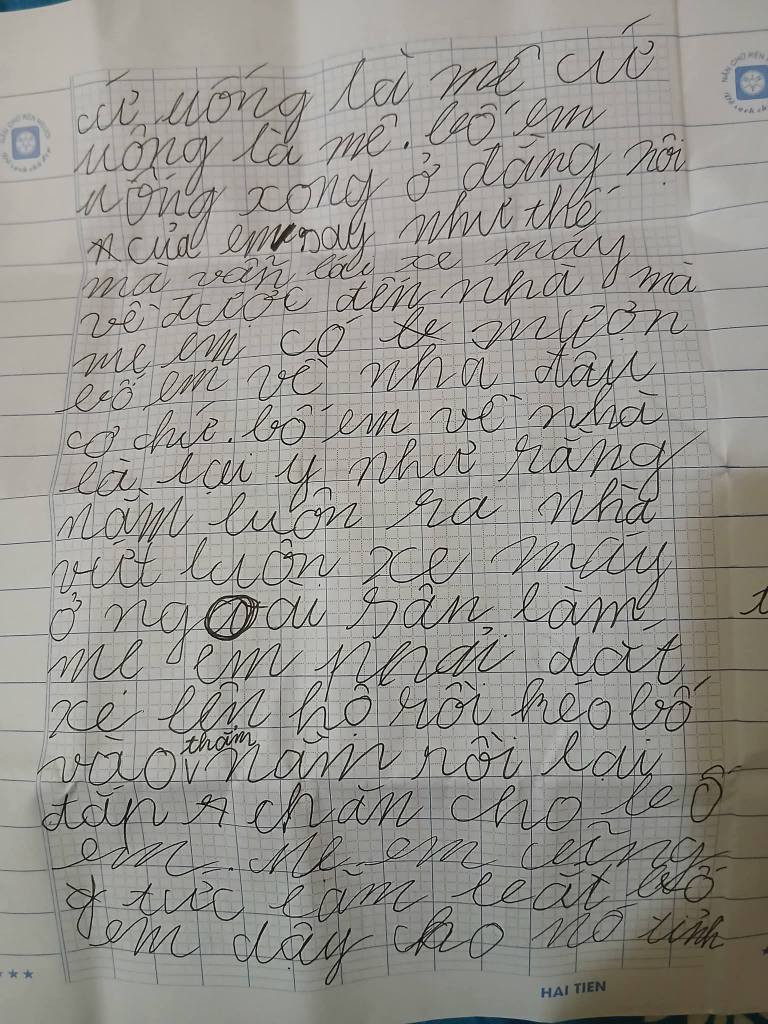 cứ uống là mê cứ
uống là mê. bố em
uống xong ở đằng nội
của em say như thế
mà vẫn lái xe máy
về được đến nhà mà
mẹ em có mượn
bố em về nhà đâu
cơ chứ. bố em về nhà
là lại y như rằng
nằm luôn ra nhà
vứt luôn xe máy
ở ngoài sân làm
mẹ em phải dắt
xe lên hộ rồi kéo bố
vào thảm nằm rồi lại
đắp chăn cho bố
em. Mẹ em cũng
tức lắm bắt bố
em dậy cho nó tỉnh
HAI TIEN